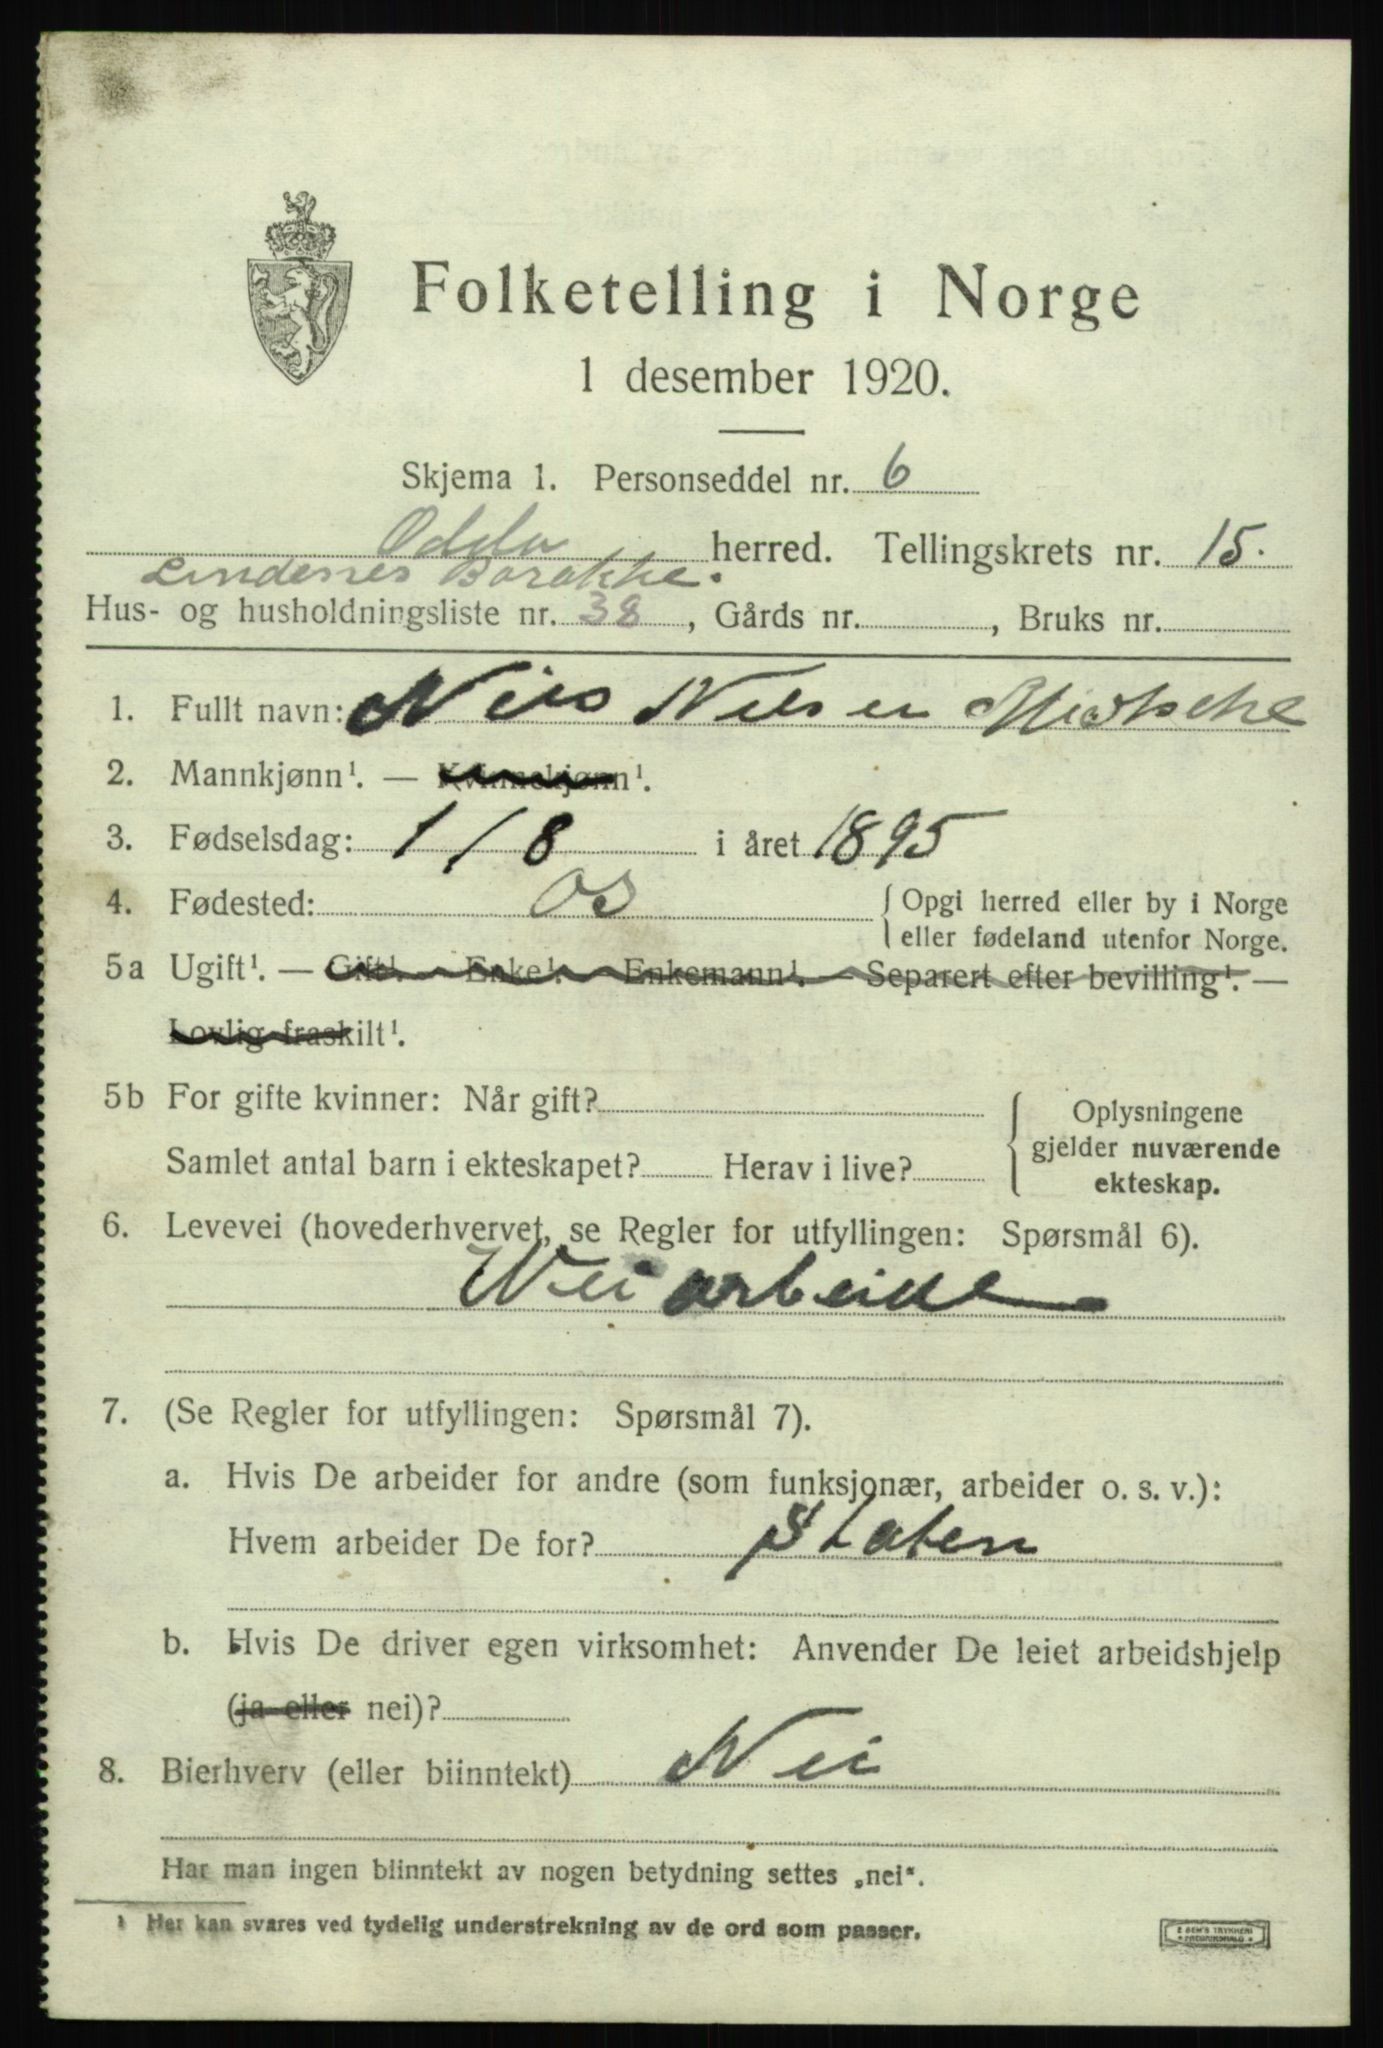 Folketelling i Norge
1 desember 1920.
Skjema 1. Personseddel nr. 6
Odda herred. Tellingskrets nr. 15.
Lindenes Barakke.
Hus- og husholdningsliste nr. 38, Gårds nr. , Bruks nr.
1. Fullt navn: Nils Nilsen
2. Mannkjønn¹. — Kvinnekjønn¹.
3. Fødselsdag: 1/8 i året 1895
4. Fødested: Os { Opgi herred eller by i Norge
eller fødeland utenfor Norge.
5a Ugift¹. — Gift¹. — Enke¹. — Enkemann¹. — Separert efter bevilling¹. —
Lovlig fraskilt¹.
5b For gifte kvinner: Når gift?
Samlet antal barn i ekteskapet? Herav i live?
{ Oplysningene
gjelder nuværende
ekteskap.
6. Levevei (hovederhvervet, se Regler for utfyllingen: Spørsmål 6).
Wei arbeide
7. (Se Regler for utfyllingen: Spørsmål 7).
a. Hvis De arbeider for andre (som funksjonær, arbeider o. s. v.):
Hvem arbeider De for? Staten
b. Hvis De driver egen virksomhet: Anvender De leiet arbeidshjelp
(ja eller nei)?
8. Bierhverv (eller biinntekt) Nei
Har man ingen biinntekt av nogen betydning settes „nei“.
¹ Her kan svares ved tydelig understrekning av de ord som passer.